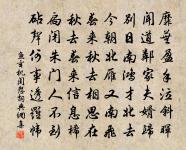 蘼蕪盈手泣斜暉
聞道鄰家夫婿歸
別日南鴻才北去
今朝北雁又南飛
春來秋去相思在
秋去春來信息稀
扃閉朱門人不到
砧聲何事透羅幃
魚玄機閨怨